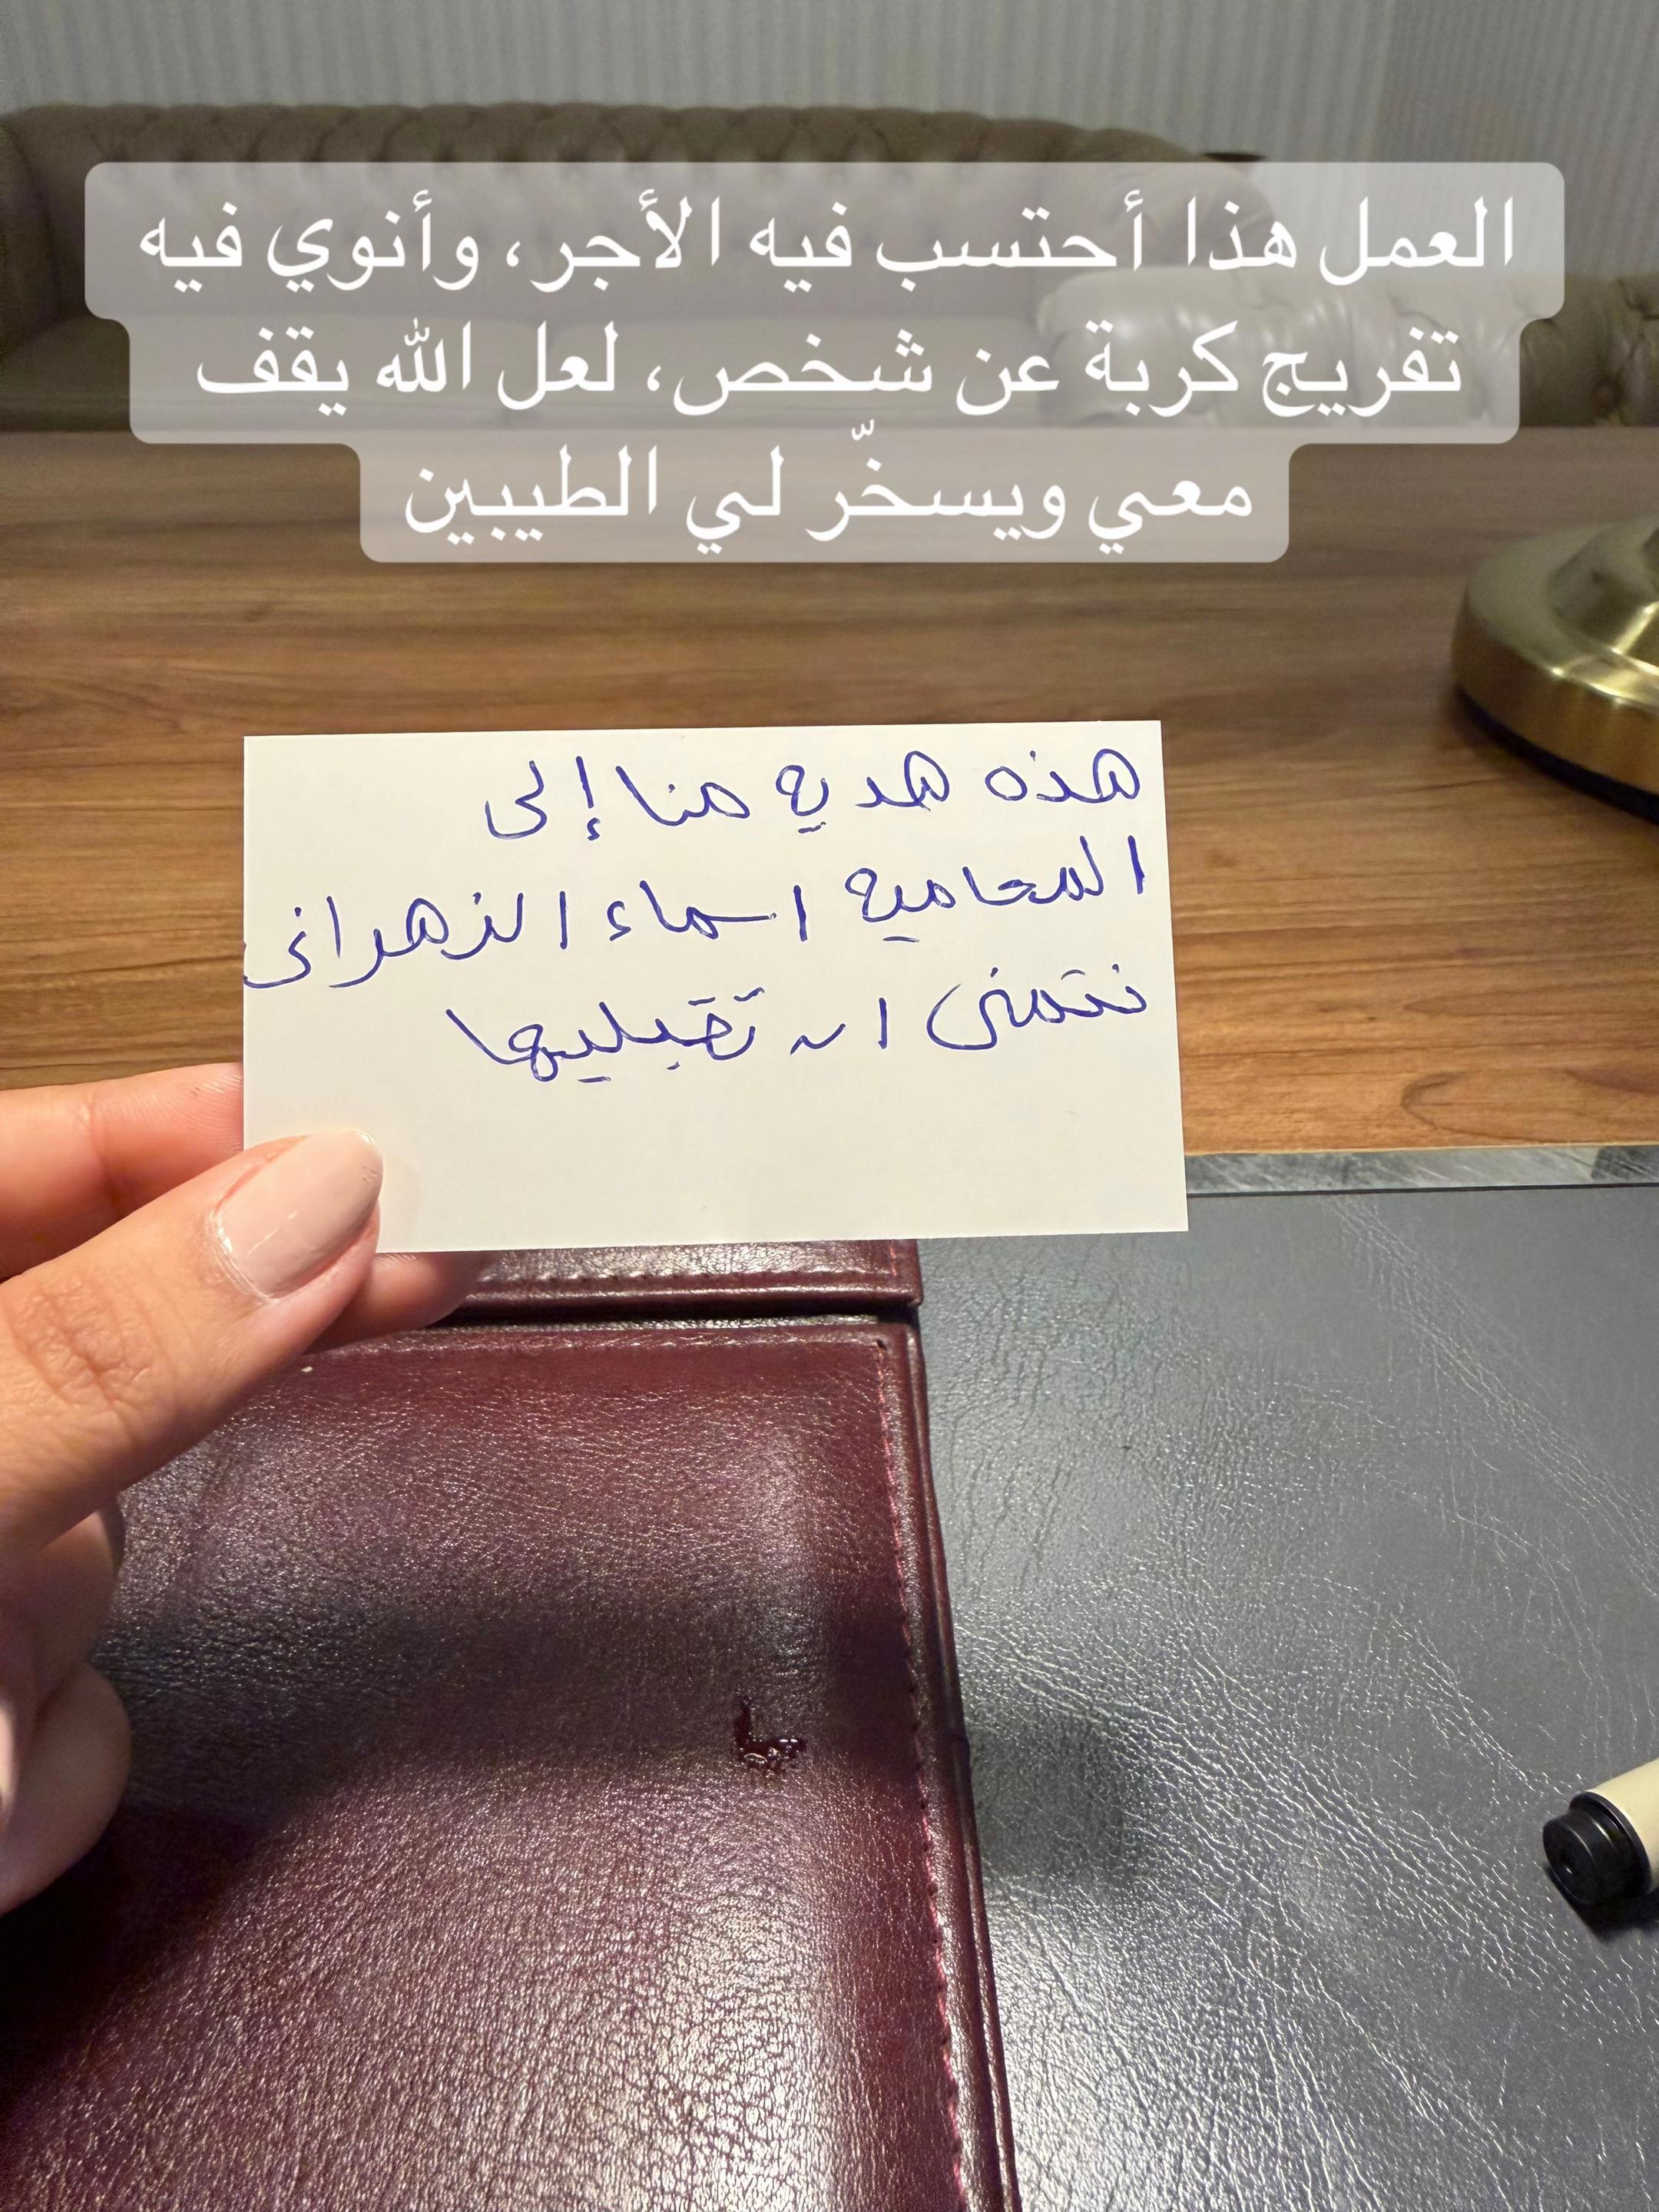 العمل هذا أحتسب فيه الأجر، وأنوي فيه
تفريج كربة عن شخص، لعل الله يقف
معي ويسخّر لي الطيبين
هذه هديه منا إلى
المحاميه اسماء الزهراني
نتمنى ان تقبليها